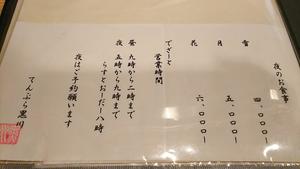 夜のお食事
雪　四、〇〇〇ー
月　五、〇〇〇ー
花　六、〇〇〇ー
でざーと
営業時間
昼　九時から二時まで
夜　五時から九時まで
らすとおーだー八時
夜はご予約願います
てんぷら黒川